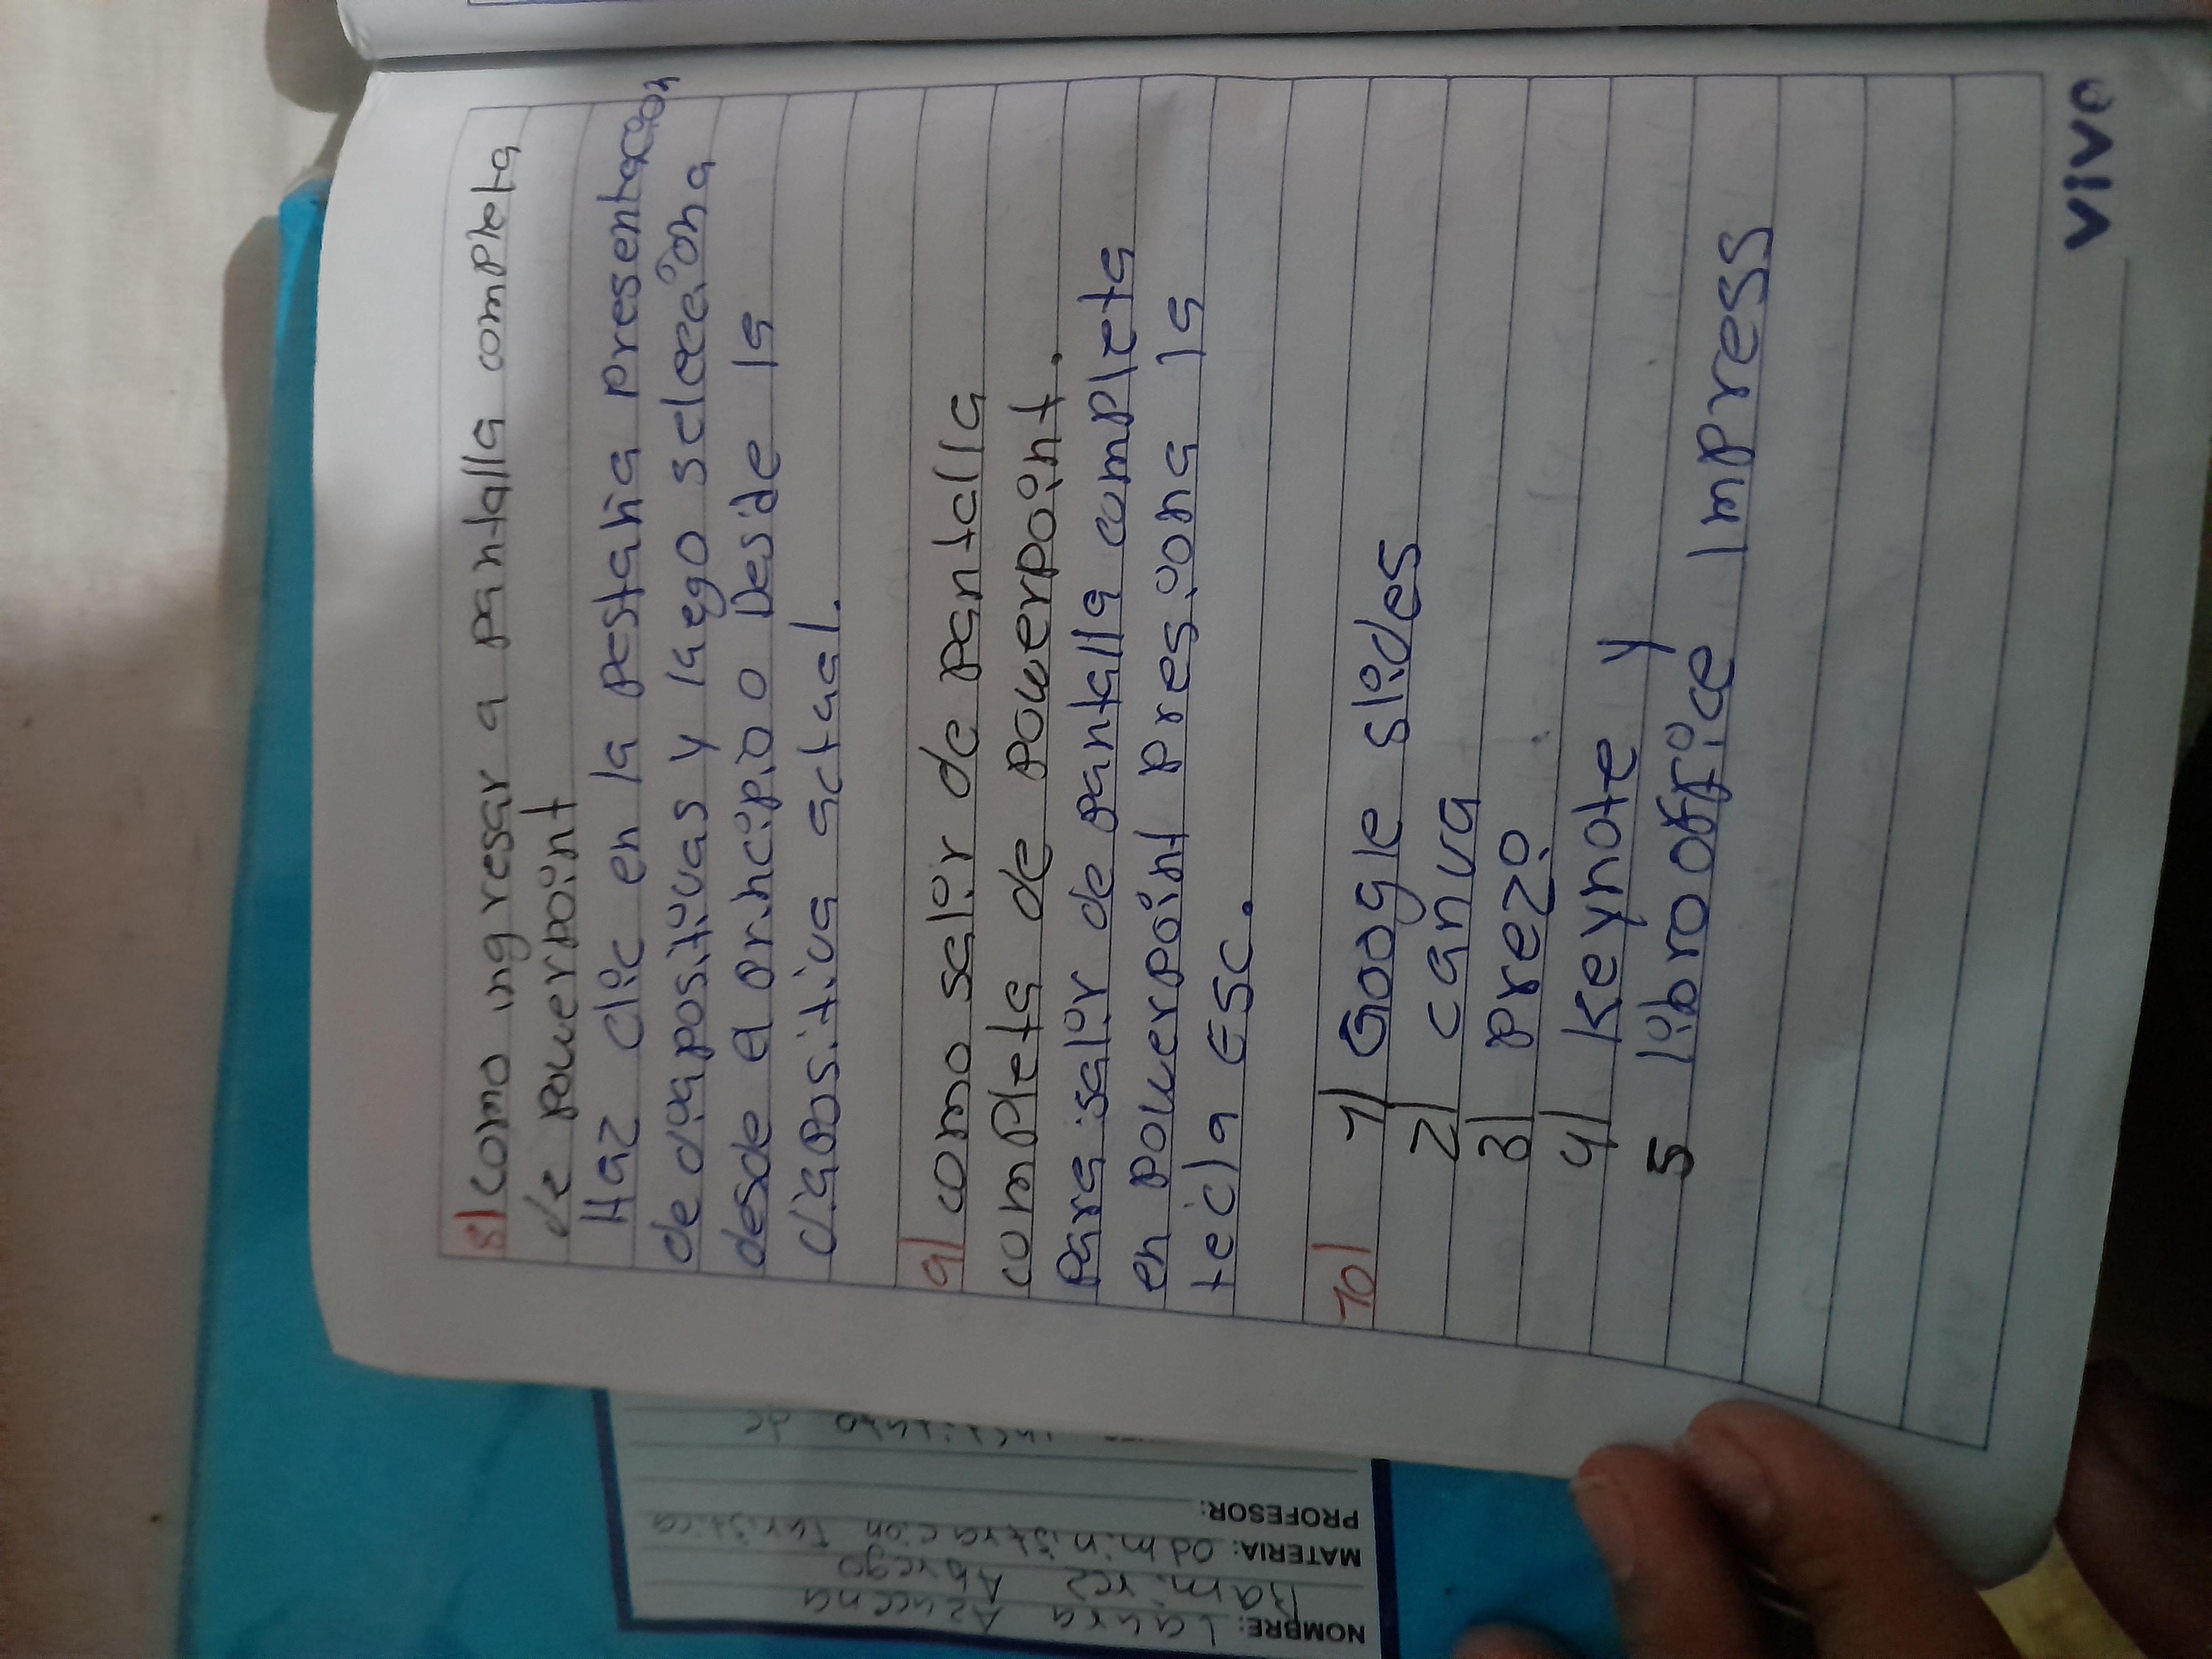 8) Como ingresar a pantalla completa
de powerpoint
Haz clic en la pestaña presentacion
de diapositivas y luego selecciona
desde el principio o Deside la
diapositiva actual.
9) como salir de pantalla
completa de powerpoint.
Para salir de pantalla completa
en powerpoint presiona la
tecla ESC.
10) 1) Google slides
2) canva
3) prezi
4) Keynote y
5 libroffice Impress
vivo
NOMBRE: Laura Azucena
Ramirez Abrego
MATERIA: administracion Turistica
PROFESOR:
instituto de